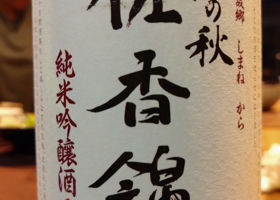 しまね から
の秋
佐香錦
純米吟醸酒